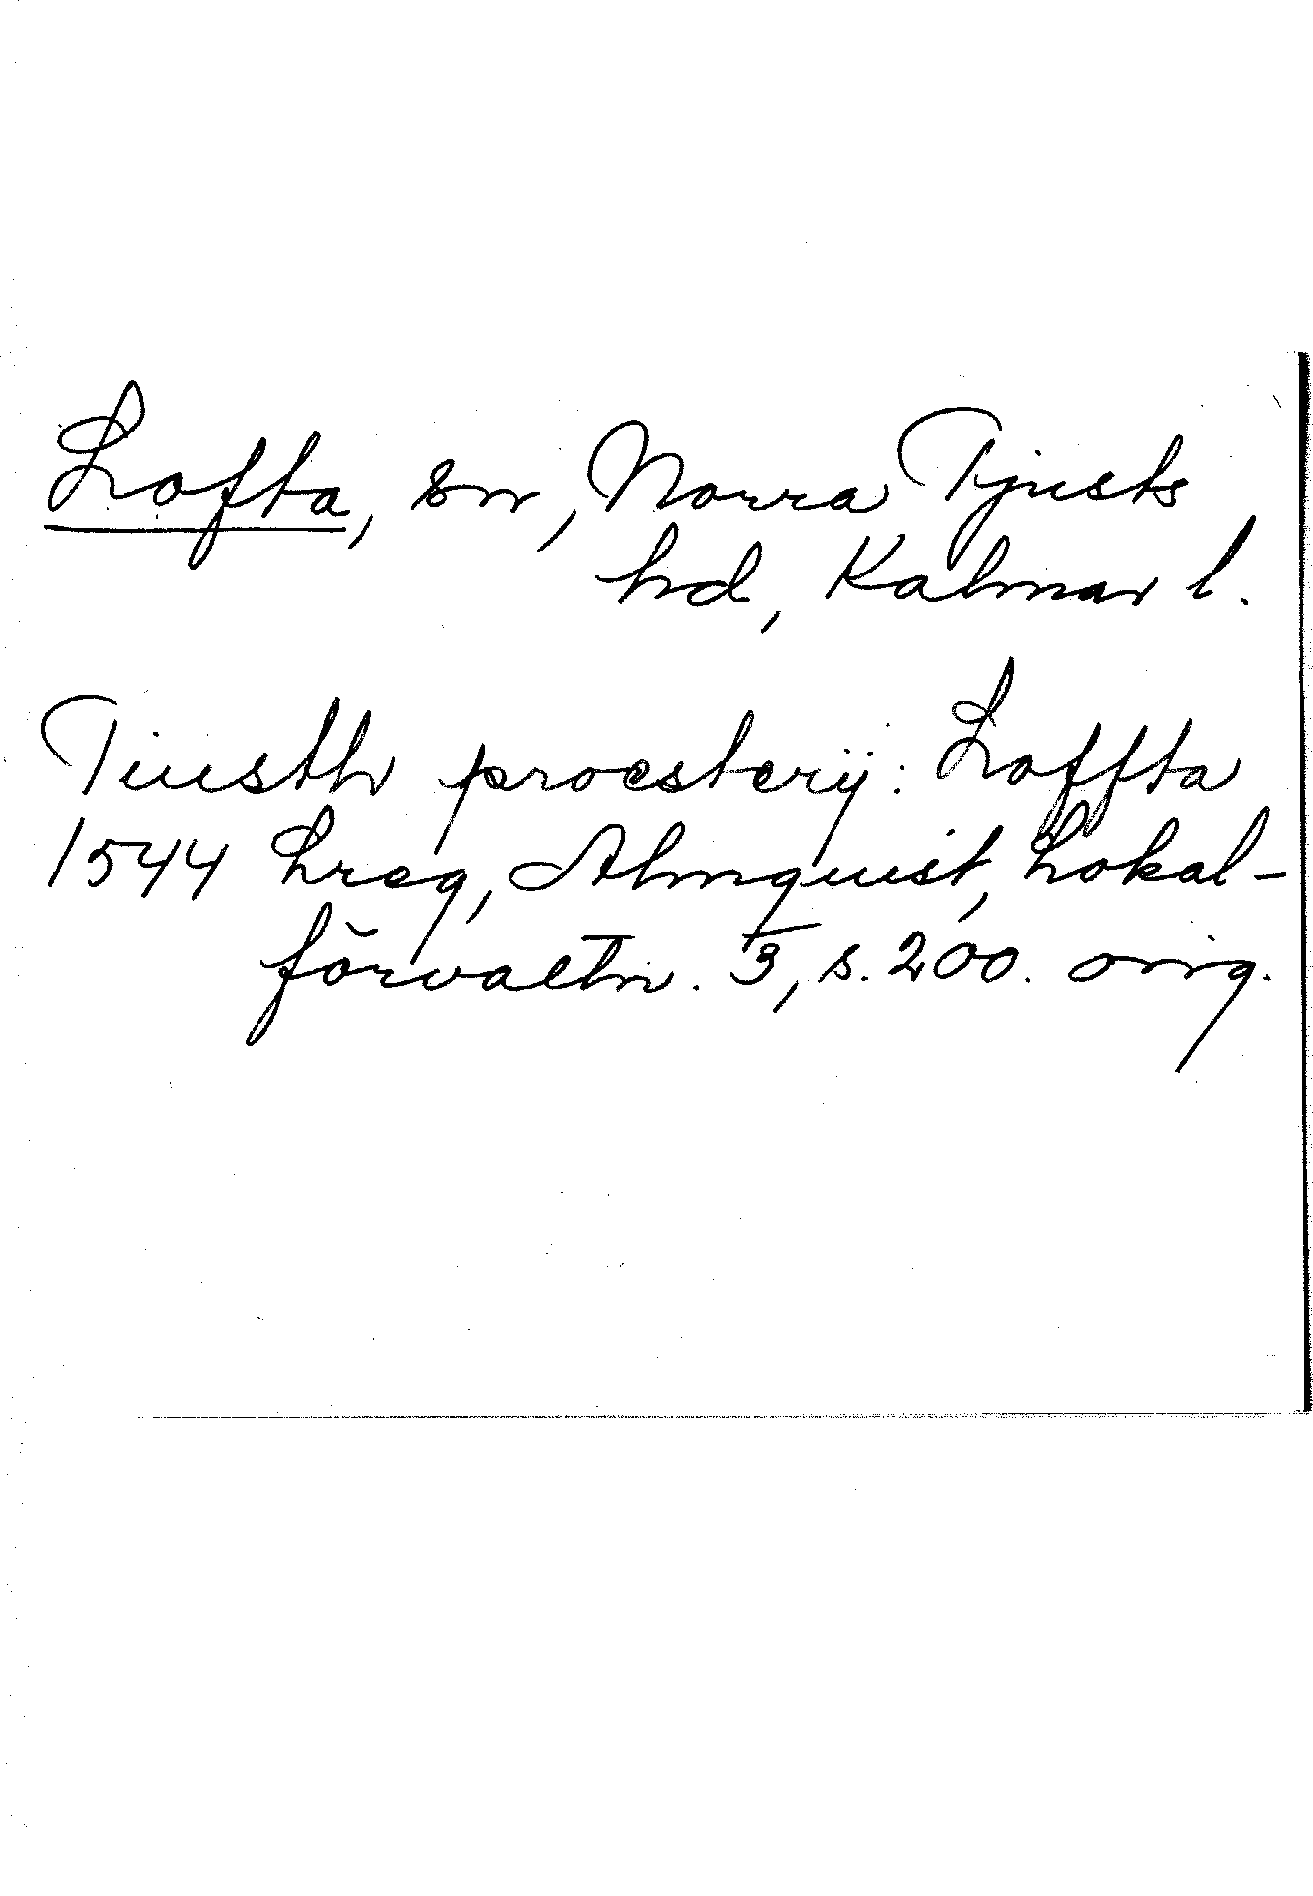 Lofta, sn, Norra Tjusts
hd, Kalmar l.
Tiusth proesterij: Loffta
1544 Lreg, Almquist, Lokal-
förvaltn. 3, s. 200. orig.